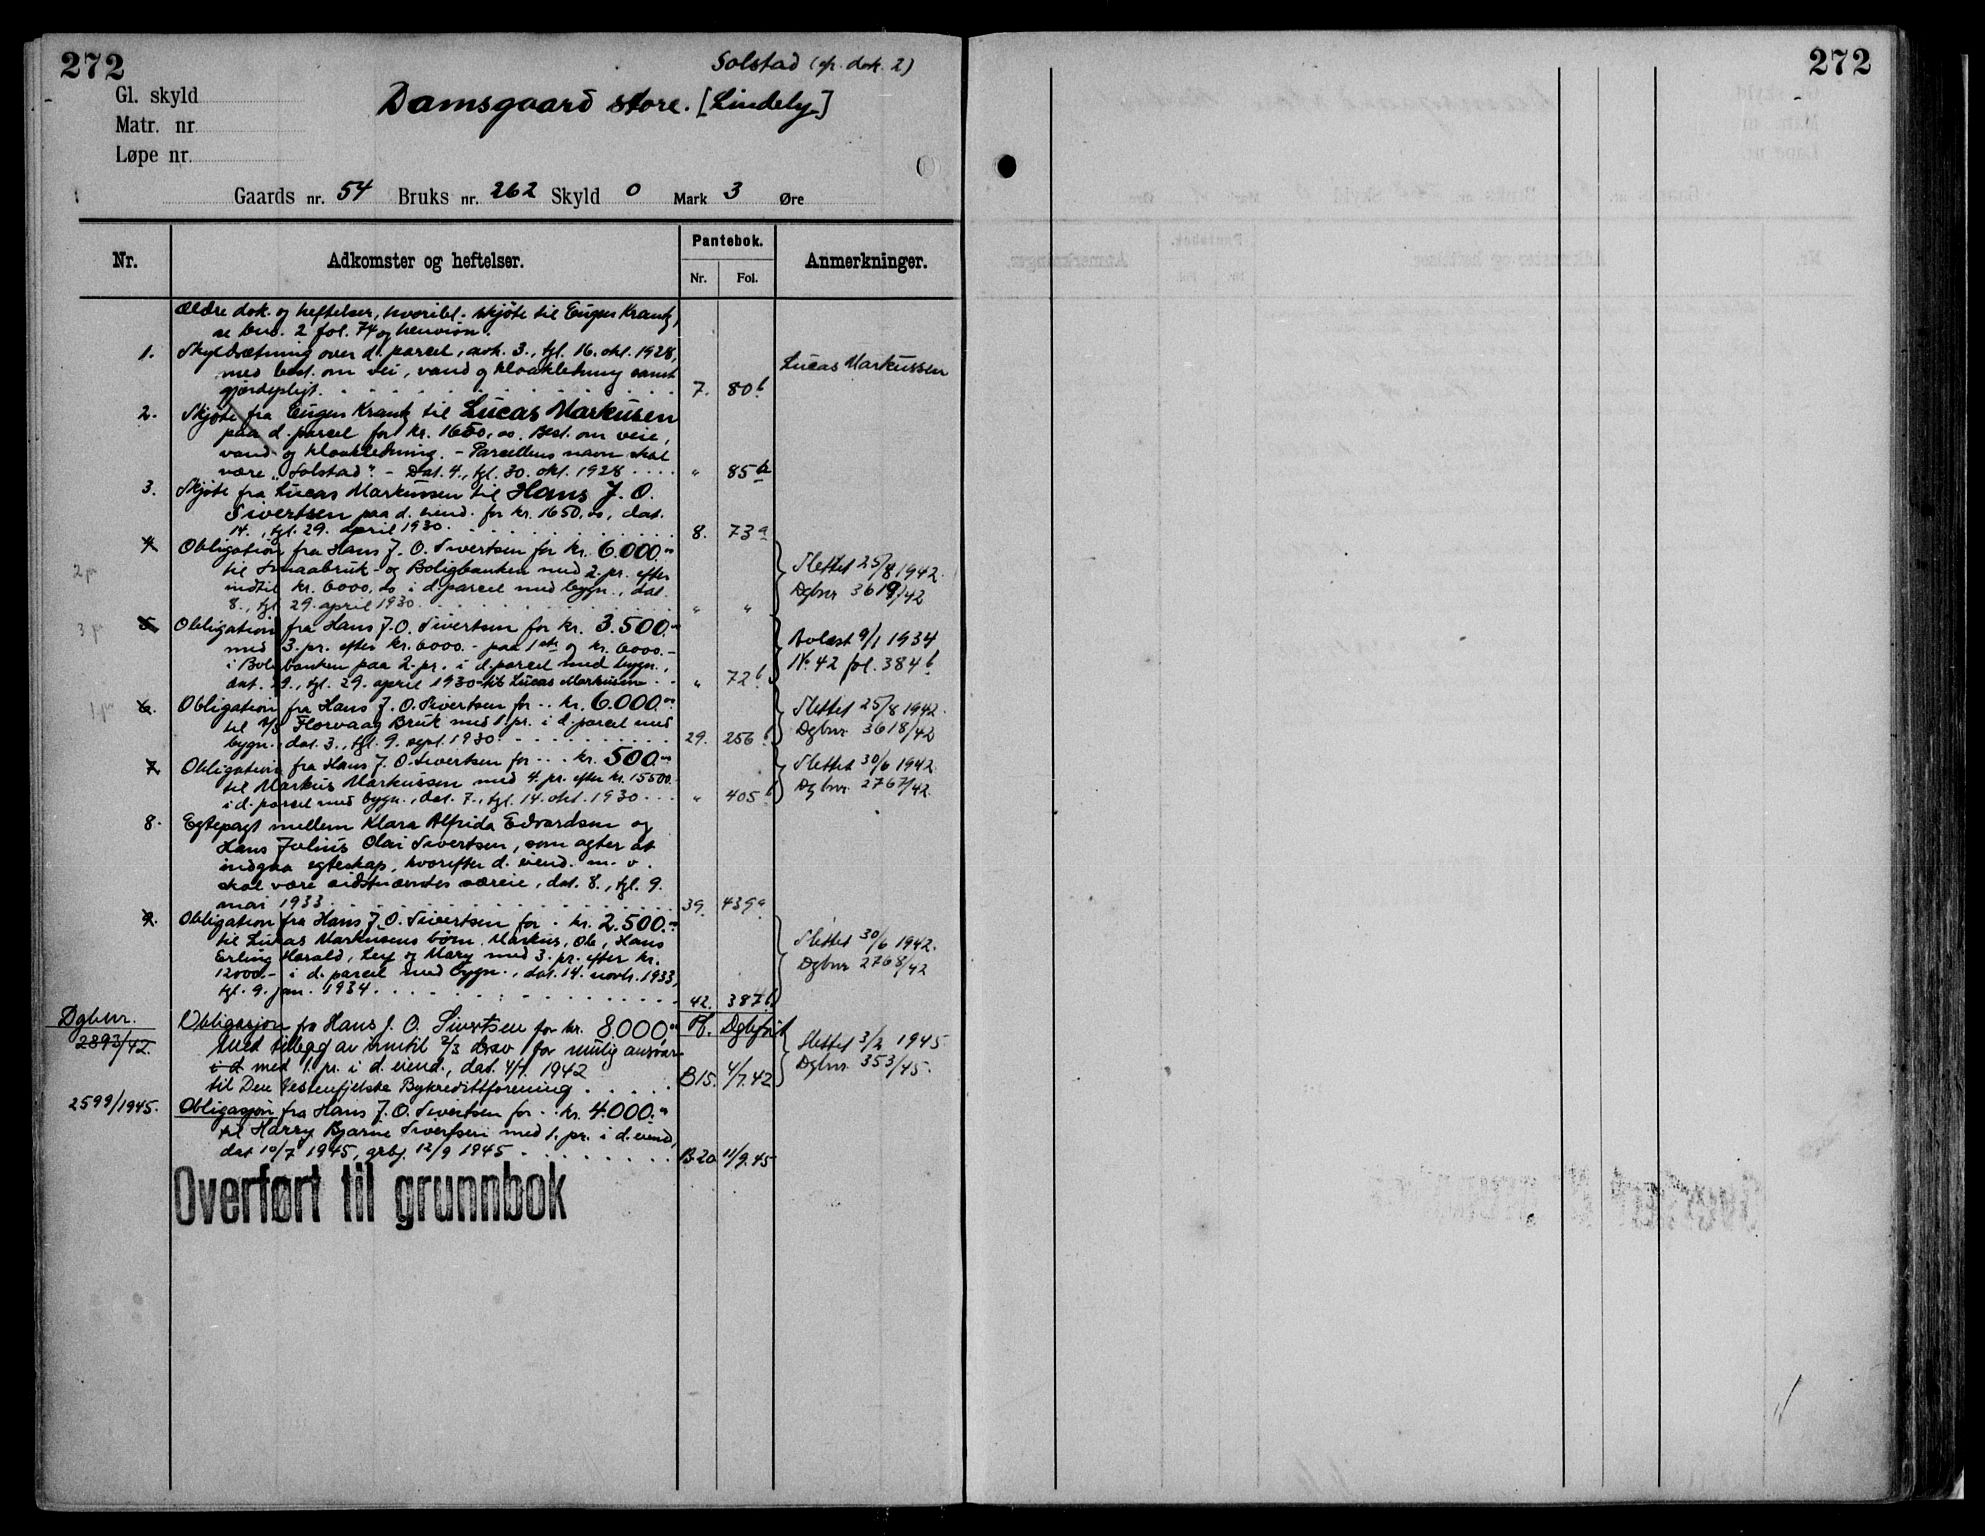 272
272
Solstad (cp. dok. 2)
Gl. skyld
Damsgaard store. [Lindely]
Matr. nr.
Løpe nr.
Gaards nr. 54 Bruks nr. 262 Skyld 0 Mark 3 Øre
Nr. Adkomster og heftelser. Pantebok. Anmerkninger.
Nr. Fol.
Ældre dok. og heftelser, hvoribl. skjøte til Eugen Krantz,
se bno. 2 fol. 74 og henvisn.
1. Skyldsætning over d. parcel, avh. 3., tgl. 16. okt. 1928,
med best. om vei, vand og kloakledning samt Lucas Markussen
gjerdepligt. 7. 80b
2. Skjøte fra Eugen Krantz til Lucas Markusen
paa d. parcel for kr. 1650,00. Best. om veie,
vand- og kloakledning. - Parcellens navn skal
være "Solstad". - Dat. 4., tgl. 30. okt. 1928 " 85b
3. Skjøte fra Lucas Markussen til Hans J. O.
Sivertsen paa d. eiend. for kr. 1650,00, dat.
14., tgl. 29. april 1930. 8. 73a
2 pr 4. Obligation fra Hans J. O. Sivertsen for kr. 6.000.00
til Smaabruk- og Boligbanken med 2. pr. efter Slettet 25/8 1942.
indtil kr. 6000,00 i d. parcel med bygn., dat. Dgbnr 3619/42
8., tgl. 29. april 1930. " "
3 pr 5. Obligation fra Hans J. O. Sivertsen for kr. 3.500.00
med 3. pr. efter kr. 6000.- paa 1ste og kr. 6000.- Avlæst 9/1 1934
i Boligbanken paa 2. pr. i d. parcel med bygn., No 42 fol. 384b
dat. 29., tgl. 29. april 1930 til Lucas Markusen " 72b
1 pr 6. Obligation fra Hans J. O. Sivertsen for kr. 6.000.00 Slettet 25/8 1942.
til A/S Florvaag Bruk med 1. pr. i d. parcel med Dgbnr 3618/42
bygn. dat. 3., tgl. 9. sept. 1930. 29. 256b
7. Obligation fra Hans J. O. Sivertsen for kr. 500.00 Slettet 30/6 1942.
til Markus Markussen med 4. pr. efter kr. 15500.- Dgbnr. 2767/42.
i d. parcel med bygn., dat. 7., tgl. 14. okt. 1930 " 405b
8. Egtepagt mellem Klara Alfrida Edvardsen og
Hans Julius Olai Sivertsen, som agter at
indgaa egteskap, hvorefter d. eiend. m. v.
skal være sidstnævntes særeie, dat. 8., tgl. 9.
mai 1933 39. 439a
9. Obligation fra Hans J. O. Sivertsen for kr. 2.500.00
til Lukas Markusens børn Markus, Ole, Hans Slettet 30/6 1942.
Erling Harald, Leif og Mary med 3. pr. efter kr. Dgbnr 2768/42
12000.- i d. parcel med bygn., dat. 14. novbr. 1933,
tgl. 9. jan. 1934. 42. 387b
Dgbnr. Obligasjon fra Hans J. O. Sivertsen for kr. 8.000,00 Pb. Dgbf.
2893/42. Med tillegg av inntil 2/3 derav for mulig ansvar Slettet 3/2 1945
i d med 1. pr. i d. eiend., dat. 4/7. 1942 B15. 4/7.42 Dgbnr 353/45.
til Den Vestenfjelske Bykredittforening
2599/1945. Obligasjon fra Hans J. O. Sivertsen for kr. 4.000.00
til Harry Bjarne Sivertsen med 1. pr. i d. eiend,
dat 10/7 1945, grbf. 12/9 1945 B.20 11/9.45
Overført til grunnbok